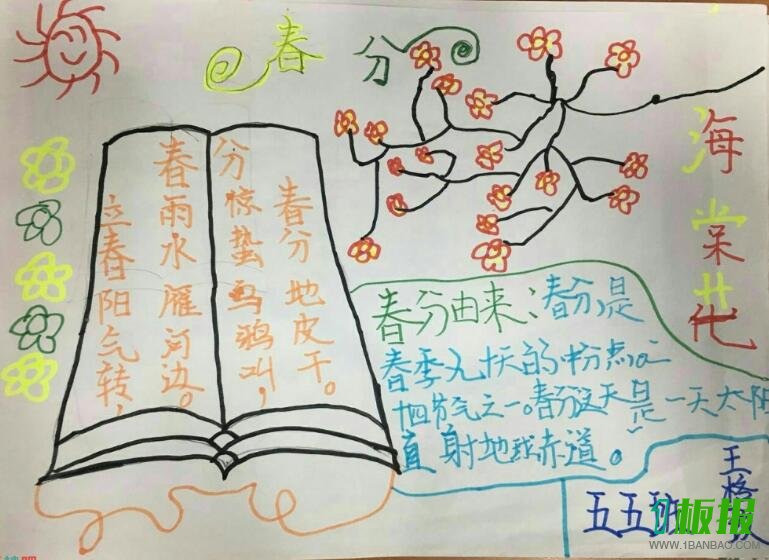 春分
海棠花
春分
立春阳气转,
雨水雁河边。
惊蛰乌鸦叫,
春分地皮干。
春分由来:春分,是
春季九十天的中分点二
十四节气之一。春分这天是一天太阳
直射地球赤道。
五五班
王格
板报
WWW.1BANBAO.COM